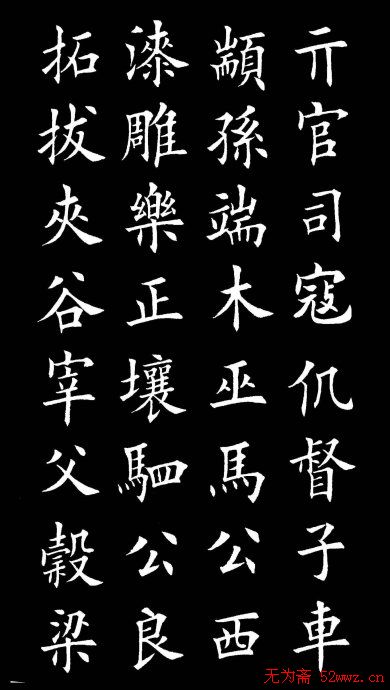 亓官司寇仉督子車
顓孫端木巫馬公西
漆雕樂正壤駟公良
拓拔夾谷宰父穀梁
无为斋 52wwz.cn